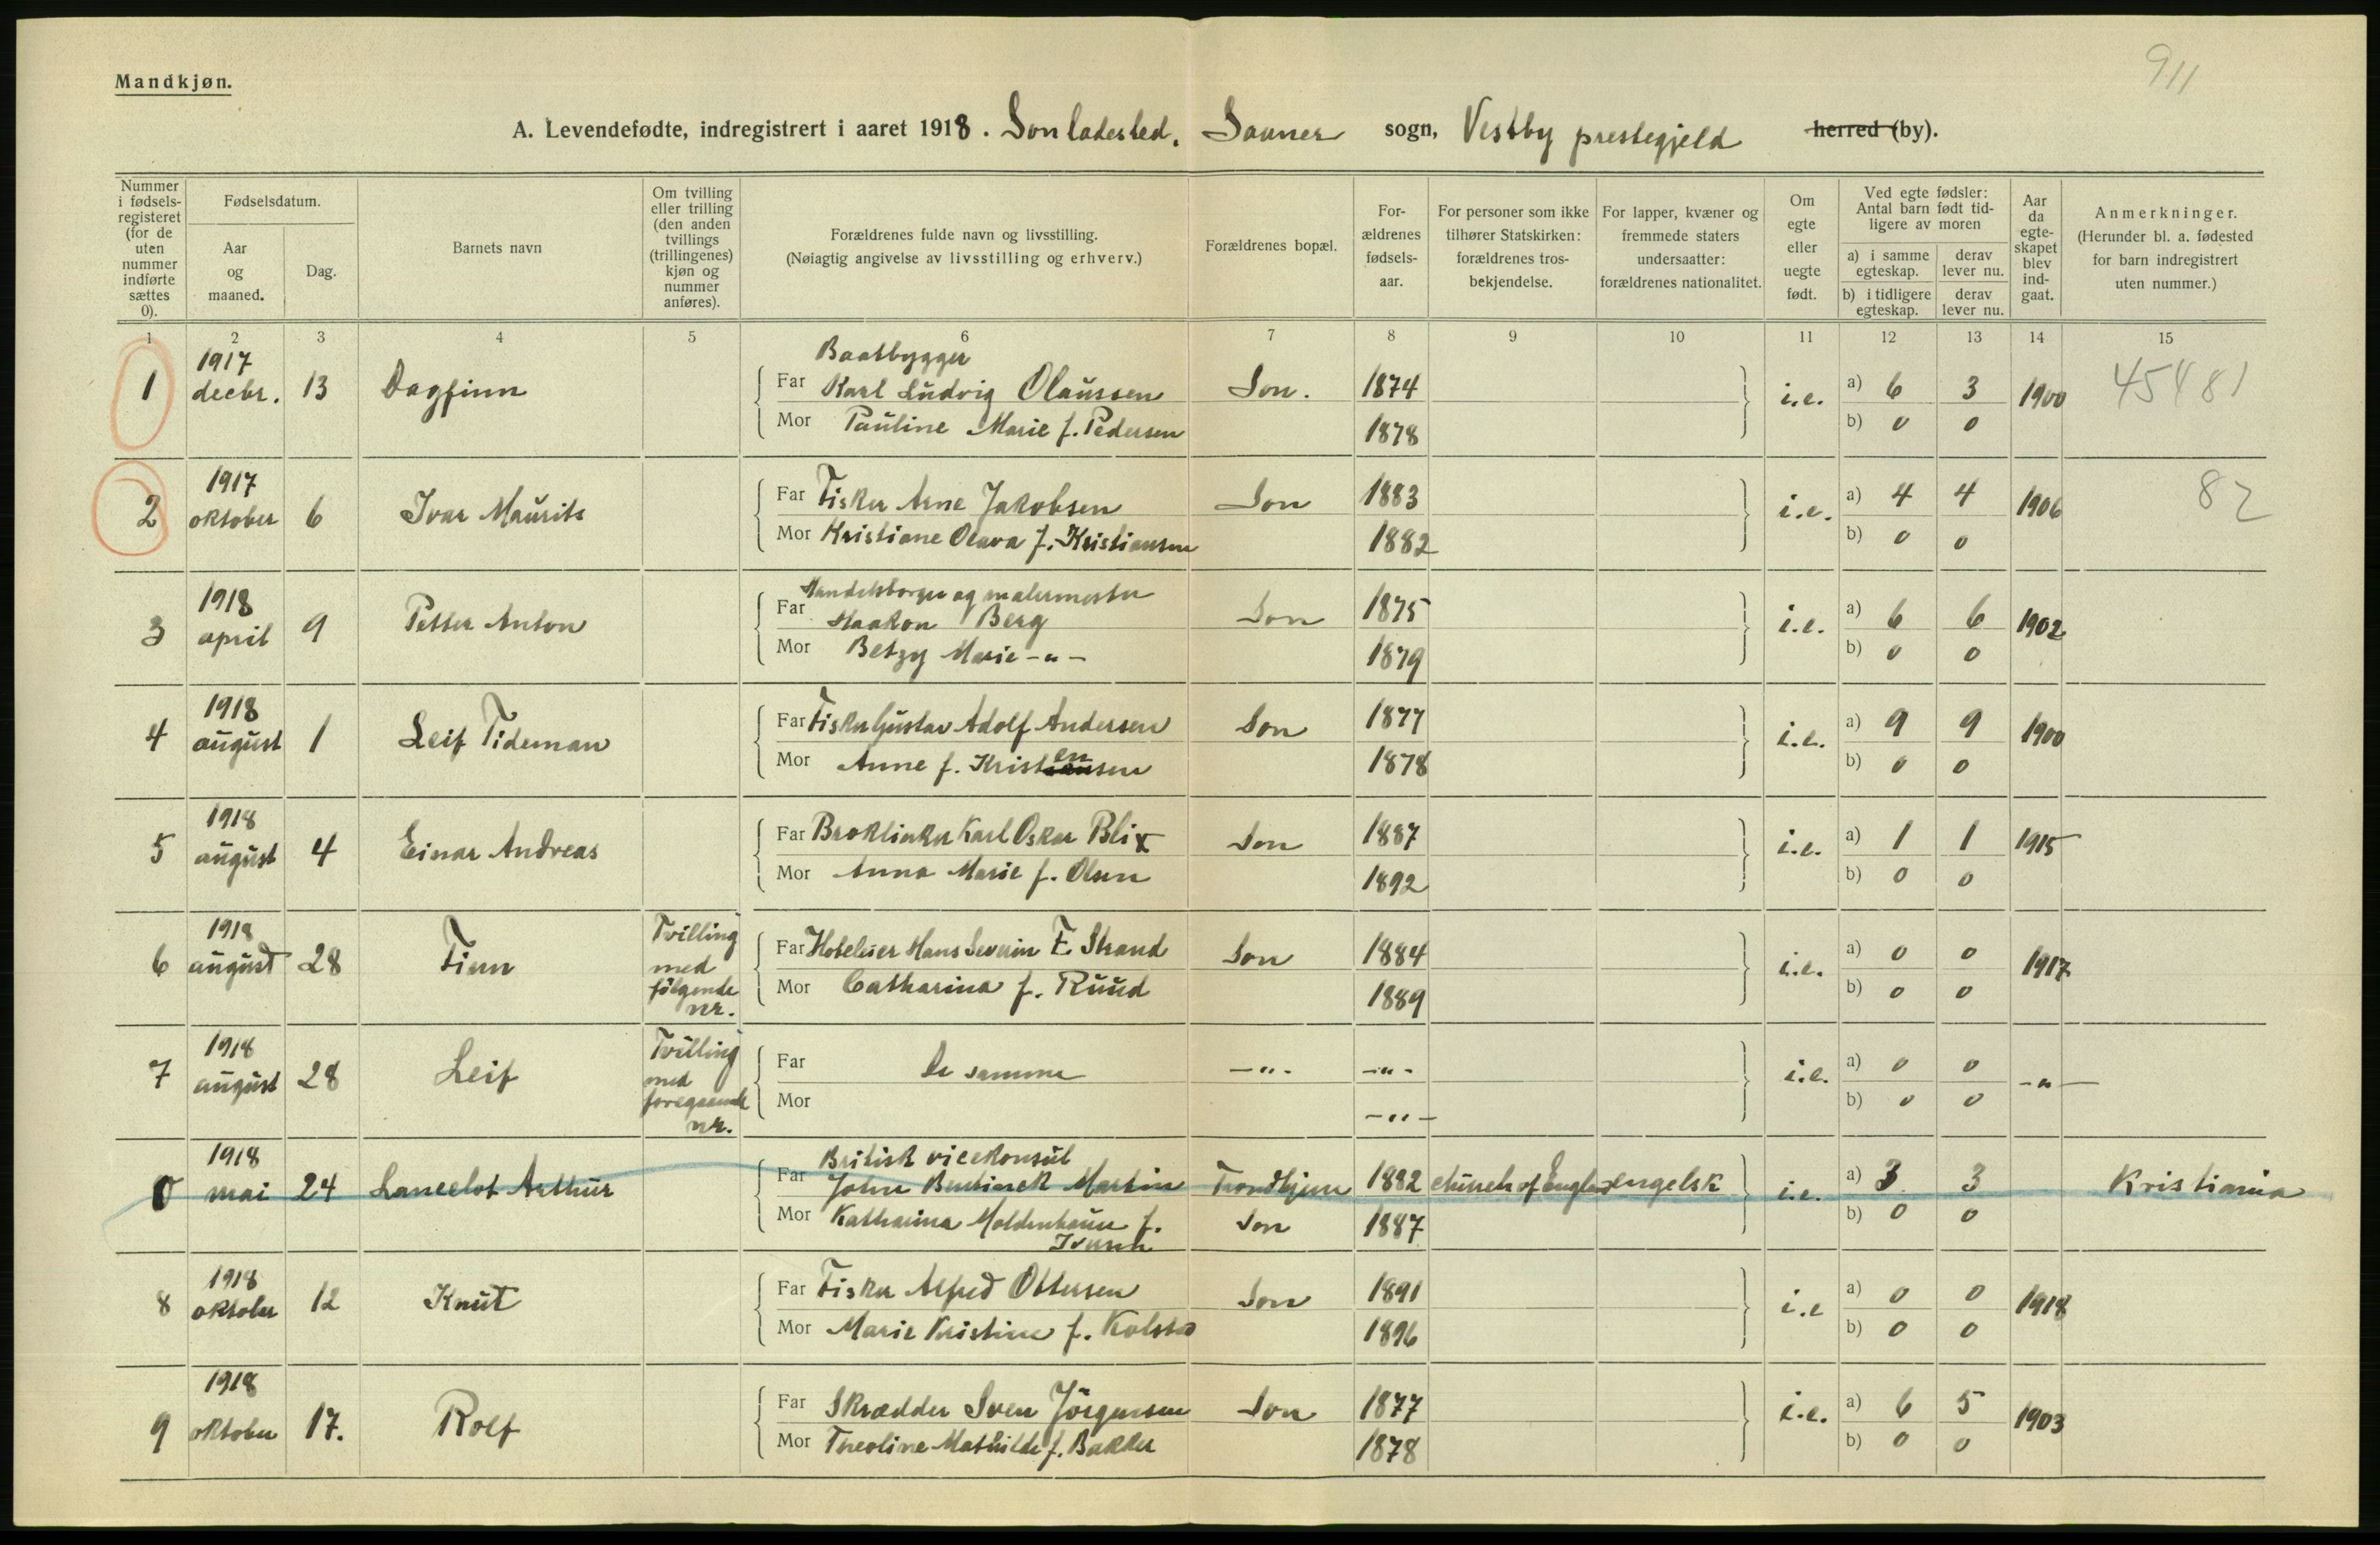 911
Mandkjøn.
A. Levendefødte, indregistrert i aaret 1918. Son ladested. Saaner sogn, Vestby prestegjeld herred (by).
Nummer i fødsels-registeret (for de uten nummer indførte sættes 0).
Fødselsdatum.
Aar og maaned.
Dag.
Barnets navn
Om tvilling eller trilling (den anden tvillings (trillingenes) kjøn og nummer anføres).
Forældrenes fulde navn og livsstilling.
(Nøiagtig angivelse av livsstilling og erhverv.)
Forældrenes bopæl.
For-ældrenes fødsels-aar.
For personer som ikke tilhører Statskirken: forældrenes tros-bekjendelse.
For lapper, kvæner og fremmede staters undersaatter: forældrenes nationalitet.
Om egte eller uegte født.
Ved egte fødsler: Antal barn født tid-ligere av moren
a) i samme egteskap.
derav lever nu.
b) i tidligere egteskap.
derav lever nu.
Aar da egte-skapet blev ind-gaat.
Anmerkninger.
(Herunder bl. a. fødested for barn indregistrert uten nummer.)
1 2 3 4 5 6 7 8 9 10 11 12 13 14 15
1 1917 decbr. 13 Dagfinn
Baatbygger
Far Karl Ludvig Olaussen Son. 1874 i.e. a) 6 3 1900 45481
Mor Pauline Marie f. Pedersen 1878 b) 0 0
2 1917 oktober 6 Ivar Maurits
Far Fisker Arne Jakobsen Son 1883 i.e. a) 4 4 1906 82
Mor Kristiane Olava f. Kristiansen 1882 b) 0 0
3 1918 april 9 Petter Anton
Handelsborger og malermester
Far Haakon Berg Son 1875 i.e. a) 6 6 1902
Mor Betzy Marie -"- 1879 b) 0 0
4 1918 august 1 Leif Tideman
Far Fisker Gustav Adolf Andersen Son 1877 i.e. a) 9 9 1900
Mor Anne f. Kristensen 1878 b) 0 0
5 1918 august 4 Einar Andreas
Far Karl Oskar Blix Son 1887 i.e. a) 1 1 1915
Mor Anna Marie f. Olsen 1892 b) 0 0
6 1918 august 28 Finn Tvilling med følgende nr.
Far Hoteleier Hans Severin E. Strand Son 1884 i.e. a) 0 0 1917
Mor Catharina f. Ruud 1889 b) 0 0
7 1918 august 28 Leif Tvilling med foregaaende nr.
Far De samme -"- -"- i.e. a) 0 0 -"-
Mor -"- b) 0 0
0 1918 mai 24 Lancelot Arthur
Britisk vicekonsul
Far John Bentinck Martin Trondhjem 1882 church of England engelsk i.e. a) 3 3 Kristiania
Mor Katharina Moldenhauer f. Iversen Son 1887 b) 0 0
8 1918 oktober 12 Knut
Far Fisker Alfred Ottersen Son 1891 i.e a) 0 0 1918
Mor Marie Kristine f. Kolstad 1896 b) 0 0
9 1918 oktober 17. Rolf
Far Skrædder Sven Jörgensen Son 1877 i.e. a) 6 5 1903
Mor Theoline Mathilde f. Bakker 1878 b) 0 0